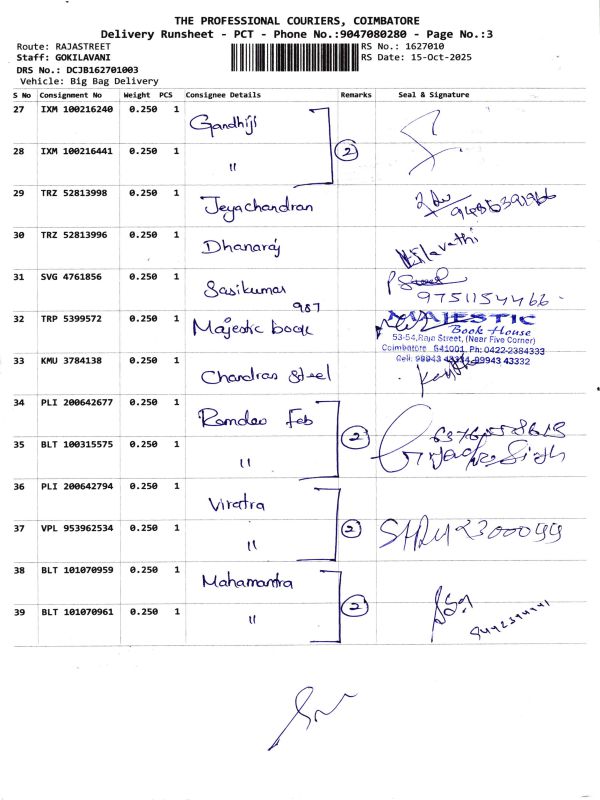 THE PROFESSIONAL COURIERS, COIMBATORE
Delivery Runsheet - PCT - Phone No.:9047080280 - Page No.:3
Route: RAJASTREET
RS No.: 1627010
Staff: GOKILAVANI
RS Date: 15-Oct-2025
DRS No.: DCJB162701003
Vehicle: Big Bag Delivery
S No Consignment No Weight PCS Consignee Details Remarks Seal & Signature
27 IXM 100216240 0.250 1 Gandhiji
2
28 IXM 100216441 0.250 1 "
29 TRZ 52813998 0.250 1 Jeyachandran
30 TRZ 52813996 0.250 1 Dhanaraj
31 SVG 4761856 0.250 1 Sasikumar
987
9751154466
32 TRP 5399572 0.250 1 Majestic book
MAJESTIC
Book House
53-54, Raja Street, (Near Five Corner)
Coimbatore 641001. Ph: 0422-2384333
Cell: 99943 43334, 99943 43332
33 KMU 3784138 0.250 1 Chandran Steel
34 PLI 200642677 0.250 1 Ramdev Feb
2
35 BLT 100315575 0.250 1 "
Singh
36 PLI 200642794 0.250 1 Viratra
2
37 VPL 953962534 0.250 1 "
38 BLT 101070959 0.250 1 Mahamantra
2
39 BLT 101070961 0.250 1 "